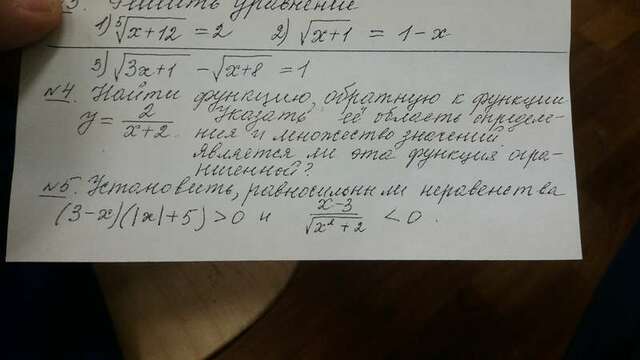 №3. Решить уравнение
1) ⁵√(x+12) = 2 2) √(x+1) = 1-x
3) √(3x+1) - √(x+8) = 1
№4. Найти функцию, обратную к функции
y = 2/(x+2). Указать её область определе-
ния и множество значений.
Является ли эта функция огра-
ниченной?
№5. Установить, равносильны ли неравенства
(3-x)(|x|+5) > 0 и (x-3)/√(x²+2) < 0.